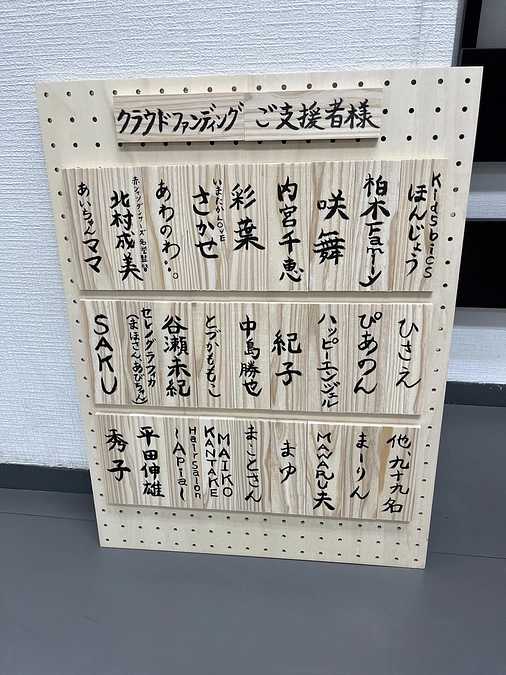 クラウドファンディング ご支援者様
KidSbics
ほんじょう
柏木Familン
咲舞
内宮千恵
彩葉
いまたかLOVE
さかせ
あわのわ。
北村成美
あいちゃんママ
ひさえ
ぴあのん
ハッピーエンジェル
紀子
中島勝也
とづかももこ
谷瀬未紀
セレブグラフィカ
(まほさん、あびちゃん)
SAKU
他、九十九名
まーりん
MAWARU夫
まゆ
まことさん
MAIKO
KANTAKE
Hair Salon
~Apia~
平田伸雄
秀子